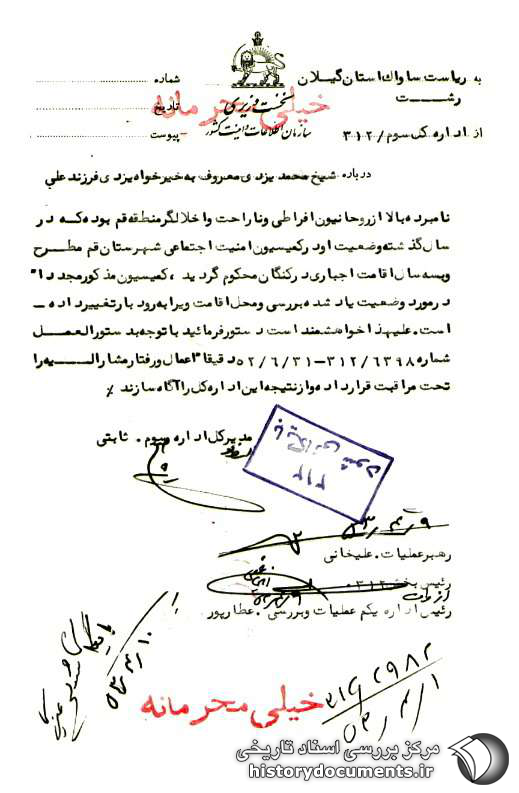 به ریاست ساواك استان گیلان
رشت
از اداره کل سوم / ۳۱۲
نخست وزیری
سازمان اطلاعات و امنیت کشور
شماره
تاریخ
پیوست
خیلی محرمانه
درباره شیخ محمد یزدی معروف به خیرخواه یزدی فرزند علی
نامبرده بالا از روحانیون افراطی و ناراحت و اخلالگر منطقه قم بوده که در
سال گذشته وضعیت او در کمیسیون امنیت اجتماعی شهرستان قم مطرح
و به سه سال اقامت اجباری در کنگان محکوم گردید ، کمیسیون مذکور مجدداً
در مورد وضعیت یاد شده بررسی و محل اقامت ویرا به رودبار تغییر داده
است . علیهذا خواهشمند است دستور فرمائید با توجه بدستورالعمل
شماره ۳۱۲/۶۳۹۸-۵۲/۶/۳۱ دقیقاً اعمال و رفتار مشارالیه را
تحت مراقبت قرار داده و از نتیجه این اداره کل را آگاه سازند ٪
مدیر کل اداره سوم . ثابتی
بایگانی شود
۳۱۲
۹/۴/۵۳
رهبر عملیات . علیخانی
رئیس بخش ۳۱۲ .
رئیس اداره یکم عملیات و بررسی . عطارپور
۱۰/۴/۵۳
۳۱۲/۲۹۸۲
۱/۴/۵۳
خیلی محرمانه
مرکز بررسی اسناد تاریخی
historydocuments.ir